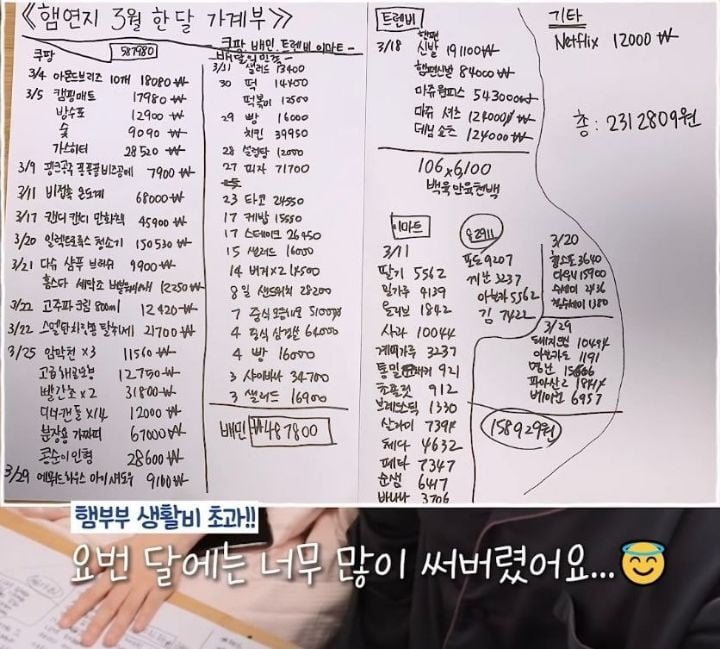 <햄연지 3월 한달 가계부>>
쿠팡 587980
3/4 아몬드브리즈 10개 18080₩
3/5 캠핑매트 17980₩
방수포 12900₩
숯 9090₩
가스히터 28520₩
3/9 7900₩
3/11 비접촉 온도계 68000₩
3/17 캔디캔디 만화책 45900₩
3/20 일렉트로룩스 청소기 150530₩
3/21 다슈 샴푸 브러쉬 9900₩
12250₩
3/22 고주파크림 800ml 12420₩
3/22 21700₩
3/25 암막천 x3 11560₩
12,750₩
빨간초 x2 31800₩
디너캔들 x14 12000₩
분장용 67000₩
콩순이인형 28600₩
3/29 에뛰드하우스 아이섀도우 9100₩
- 쿠팡 배민 트렌비 이마트 -
배달의민족
3/31 샐러드 13400
30 떡 14400
떡볶이 12500
29 빵 16000
치킨 39950
28 설렁탕 12000
27 피자 71700
23 타코 24550
17 케밥 15550
17 스테이크 26450
15 샐러드 16000
14 버거x2
8일 샌드위치 28200
7 중식 51000
4 중식 64000
4 빵 16000
3 샤이바나 34,700
3 샐러드 16900
배민 ₩487800
트렌비
3/18 햄편 신발 191100₩
햄편신발 84000₩
마쥬원피스 543000₩
마쥬 셔츠 124000₩
데님 쇼츠 124000₩
106×6,100
백육만육천백
이마트
3/11
딸기 5562
밀가루 4139
올리브 1842
사과 10044
계피가루 3237
통밀 921
초콜렛 912
브레드스틱 1330
7398
체다 4632
페타 7347
순샘 6417
바나나 3706
포도 9207
3237
아보카도 5562
김 7422
3/20
3640
다우니 15900
수세미 2436
1180
3/29
10494
아보카도 1191
명란
베이컨 6957
158929원
기타
Netflix 12000₩
총: 2312809원
햄부부 생활비 초과!!
요번 달에는 너무 많이 써버렸어요...